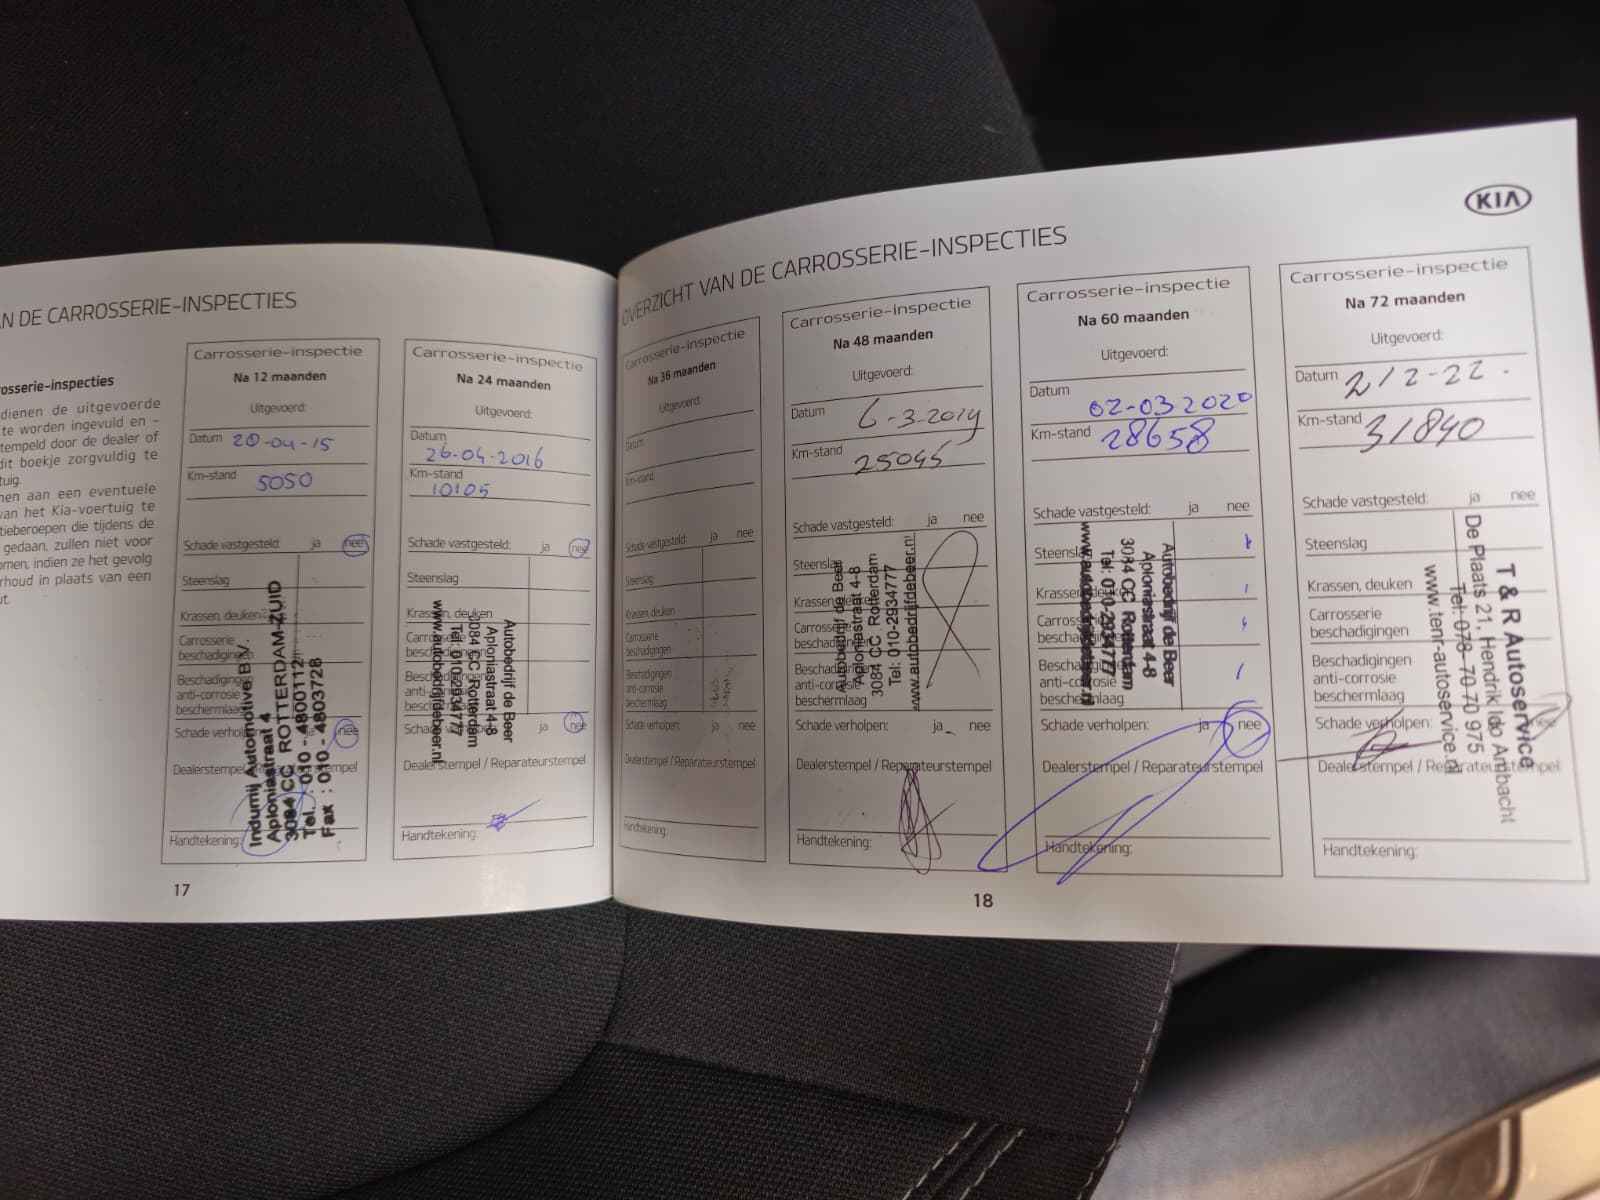 AN DE CARROSSERIE-INSPECTIES
rosserie-inspecties
dienen de uitgevoerde
te worden ingevuld en -
tempeld door de dealer of
dit boekje zorgvuldig te
tuig.
nen aan een eventuele
van het Kia-voertuig te
tieberoepen die tijdens de
gedaan, zullen niet voor
omen, indien ze het gevolg
erhoud in plaats van een
ut.
Carrosserie-inspectie
Na 12 maanden
Uitgevoerd:
Datum 20-04-15
Km-stand 5050
Schade vastgesteld: ja nee
Steenslag
Krassen, deuken
Carrosserie
beschadigingen
Beschadigingen
anti-corrosie
beschermlaag
Schade verholpen: ja nee
Dealerstempel / Reparateurstempel
Handtekening:
Indumij Automotive B.V.
Aploniastraat 4
3084 CC ROTTERDAM-ZUID
Tel. : 010 - 4800112
Fax : 010 - 4803728
17
Carrosserie-inspectie
Na 24 maanden
Uitgevoerd:
Datum 26-04-2016
Km-stand
10105
Schade vastgesteld: ja nee
Steenslag
Krassen, deuken
Carrosserie
beschadigingen
Beschadigingen
anti-corrosie
beschermlaag
Schade verholpen: ja nee
Dealerstempel / Reparateurstempel
Handtekening:
Autobedrijf de Beer
Aploniastraat 4-8
3084 CC Rotterdam
Tel: 010-2934777
www.autobedrijfdebeer.nl
KIA
OVERZICHT VAN DE CARROSSERIE-INSPECTIES
Carrosserie-inspectie
Na 36 maanden
Uitgevoerd:
Datum
Km-stand
Schade vastgesteld: ja nee
Steenslag
Krassen, deuken
Carrosserie
beschadigingen
Beschadigingen
anti-corrosie
beschermlaag
Schade verholpen: ja nee
Dealerstempel / Reparateurstempel
Handtekening:
Carrosserie-inspectie
Na 48 maanden
Uitgevoerd:
Datum 6-3-2019
Km-stand 25045
Schade vastgesteld: ja nee
Steenslag
Krassen, deuken
Carrosserie
beschadigingen
Beschadigingen
anti-corrosie
beschermlaag
Schade verholpen: ja nee
Dealerstempel / Reparateurstempel
Handtekening:
Autobedrijf de Beer
Aploniastraat 4-8
3084 CC Rotterdam
Tel: 010-2934777
www.autobedrijfdebeer.nl
18
Carrosserie-inspectie
Na 60 maanden
Uitgevoerd:
Datum
02-03-2020
Km-stand 28658
Schade vastgesteld: ja nee
Steenslag
Krassen, deuken
Carrosserie
beschadigingen
Beschadigingen
anti-corrosie
beschermlaag
Schade verholpen: ja nee
Dealerstempel / Reparateurstempel
Handtekening:
Autobedrijf de Beer
Aploniastraat 4-8
3084 CC Rotterdam
Tel: 010-2934777
www.autobedrijfdebeer.nl
Carrosserie-inspectie
Na 72 maanden
Uitgevoerd:
Datum 2/2-22.
Km-stand 31840
Schade vastgesteld: ja nee
Steenslag
Krassen, deuken
Carrosserie
beschadigingen
Beschadigingen
anti-corrosie
beschermlaag
Schade verholpen: nee
Dealerstempel / Reparateurstempel
Handtekening:
T & R Autoservice
De Plaats 21, Hendrik Ido Ambacht
Tel: 078-70 70 975
www.tenr-autoservice.nl